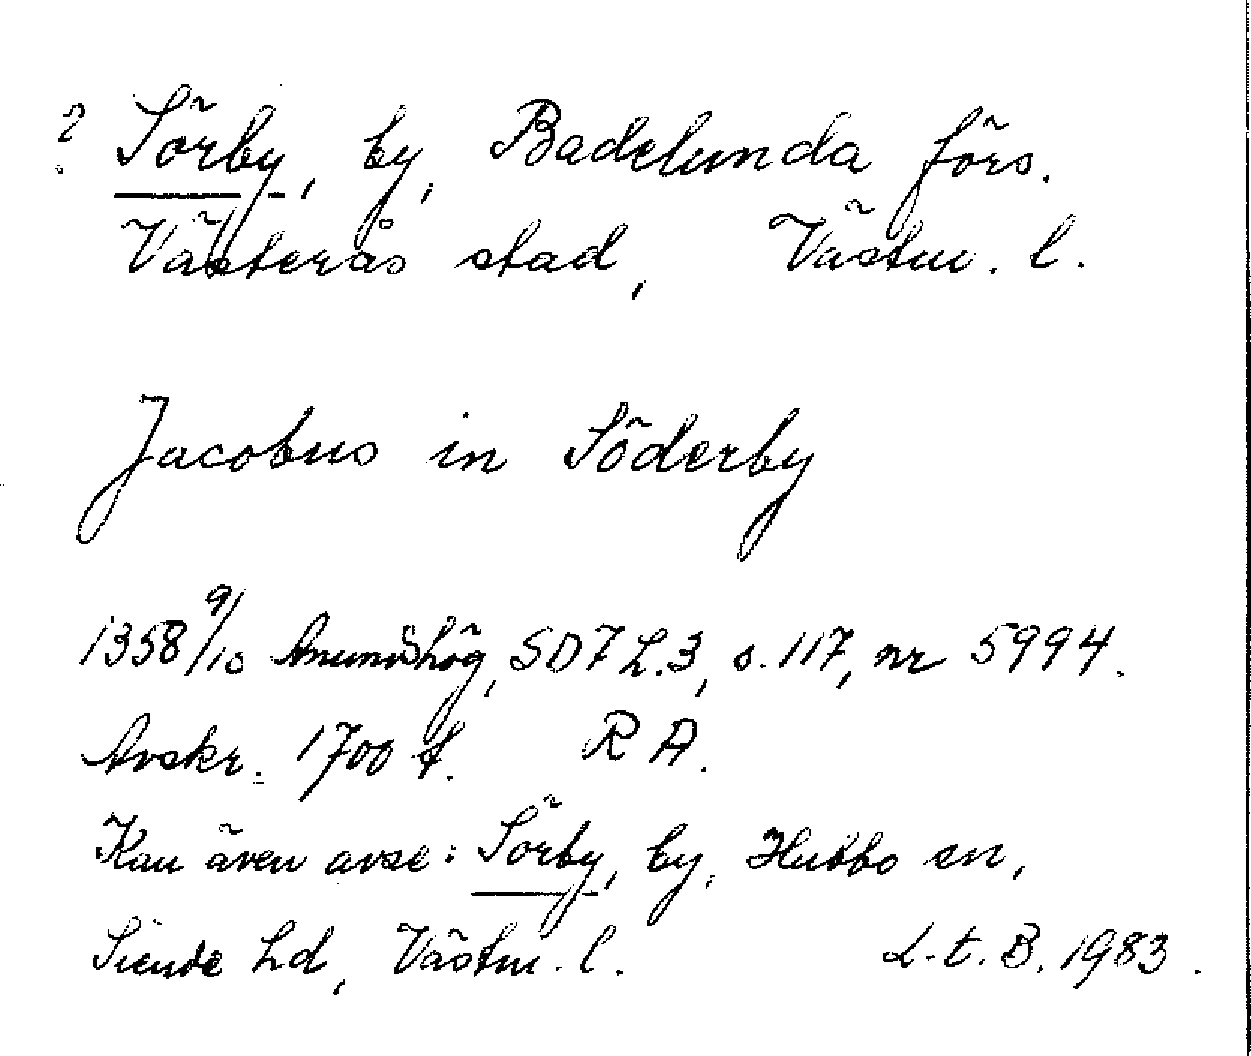 ? Sörby, by, Badelunda förs.
Västerås stad, Västm. l.
Jacobus in Söderby
1358 9/10 Anundshög, SD 7 h.3, s. 117, nr 5994.
Avskr. 1700 t. RA.
Kan även avse: Sörby, by, Hubbo sn,
Siende hd, Västm. l. L.t.B. 1983.